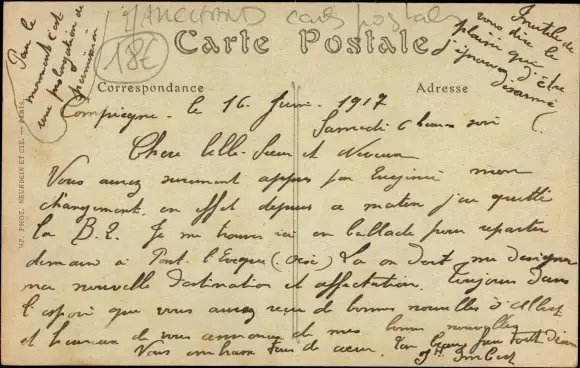 MARCHAND cartes postales
18€
Carte Postale
Correspondance
Adresse
Pour le
moment c'est
une prolongation de
permission
Inutile de
vous dire le
plaisir que
j'éprouve d'être
désarmé
IMP. PHOT. NEURDEIN ET CIE. — PARIS
Compiegne. le 16 Juin. 1917
Samedi 6 heures soir
Chere belle-Soeur et Neveux
Vous aurez surement appris par Eugénie mon
changement, en effet depuis ce matin j'ai quitté
la B.2. Je me trouve ici en ballade pour repartir
demain à Pont l'Eveque (Oise) La on doit me designer
ma nouvelle destination et affectation. Toujours dans
l'espoir que vous aurez reçu de bonnes nouvelles d'Albert
et heureux de vous annoncer de mes bonnes nouvelles
Vous embrasse tous de coeur. Ton beau frere